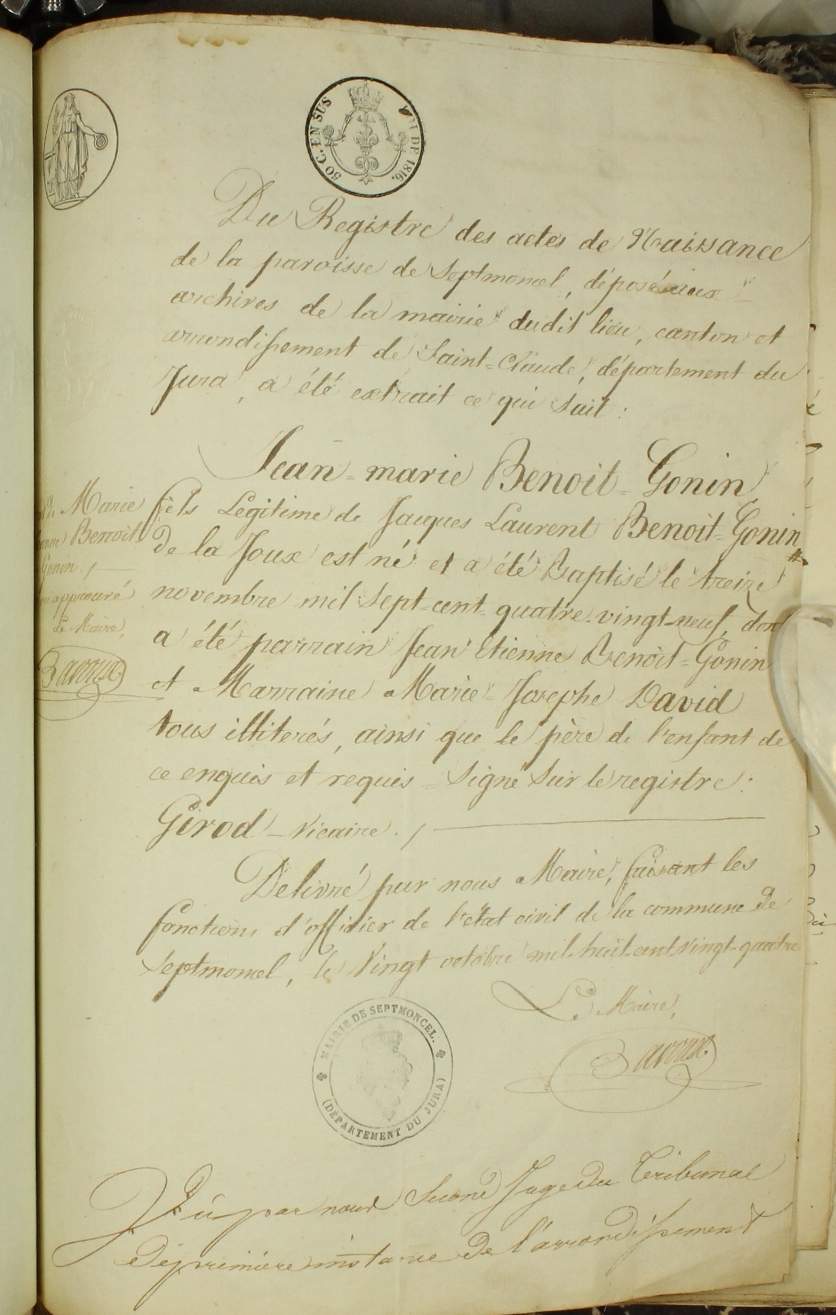 50 C. EN SUS
LOI DE 1816.
Du Registre des actes de Naissance
de la paroisse de Septmoncel, déposé aux
archives de la mairie dudit lieu, canton et
arrondissement de Saint-Claude, département du
Jura, a été extrait ce qui suit :
Jean-marie Benoit-Gonin
fils Légitime de Jacques Laurent Benoit-Gonin
De la Joux est né et a été Baptisé le treize
novembre mil sept-cent-quatre-vingt-neuf, dont
a été parrain Jean Etienne Benoit-Gonin
et Marraine Marie-Josephe David
tous illiterés, ainsi que le père de l'enfant de
ce enquis et requis - Signé sur le registre :
Girod - vicaire ./
Marie
Benoit
Gonin ./
approuvé
Le Maire,
Bavoux
Délivré par nous Maire, faisant les
fonctions d'officier de l'état civil de la commune de
Septmoncel, le Vingt octobre mil-huit-cent-vingt-quatre
Le Maire,
Bavoux
MAIRIE DE SEPTMONCEL.
(DÉPARTEMENT DU JURA)
Vu par nous Second Juge du Tribunal
de première instance De l'arrondissement